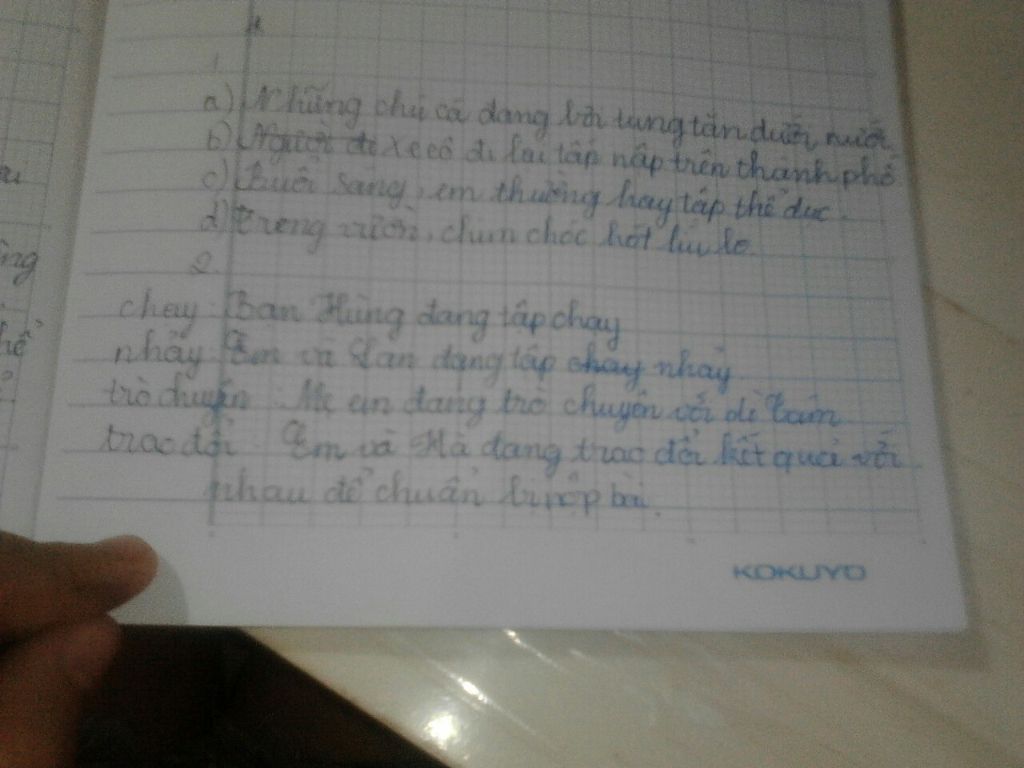 1
a) Những chú cá đang bơi tung tăn dưới nước
b) Người đi xe cô đi lại tấp nập trên thành phố
c) Buổi sáng, em thường hay tập thể dục.
d) trong vườn, chim chóc hót líu lo
2.
chạy: Bạn Hùng đang tập chạy
nhảy: Em và Lan đang tập chạy nhảy
trò chuyện: Mẹ em đang trò chuyện với dì
trao đổi: Em và Hà đang trao đổi kết quả với
nhau để chuẩn bị nộp bài.
KOKUYO